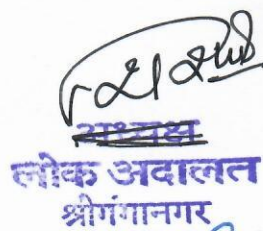 अध्यक्ष
लोक अदालत
श्रीगंगानगर